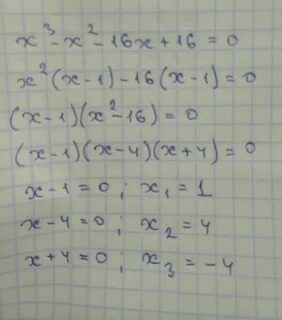 x³ - x² - 16x + 16 = 0
x²(x - 1) - 16(x - 1) = 0
(x - 1)(x² - 16) = 0
(x - 1)(x - 4)(x + 4) = 0
x - 1 = 0 ; x₁ = 1
x - 4 = 0 ; x₂ = 4
x + 4 = 0 ; x₃ = -4